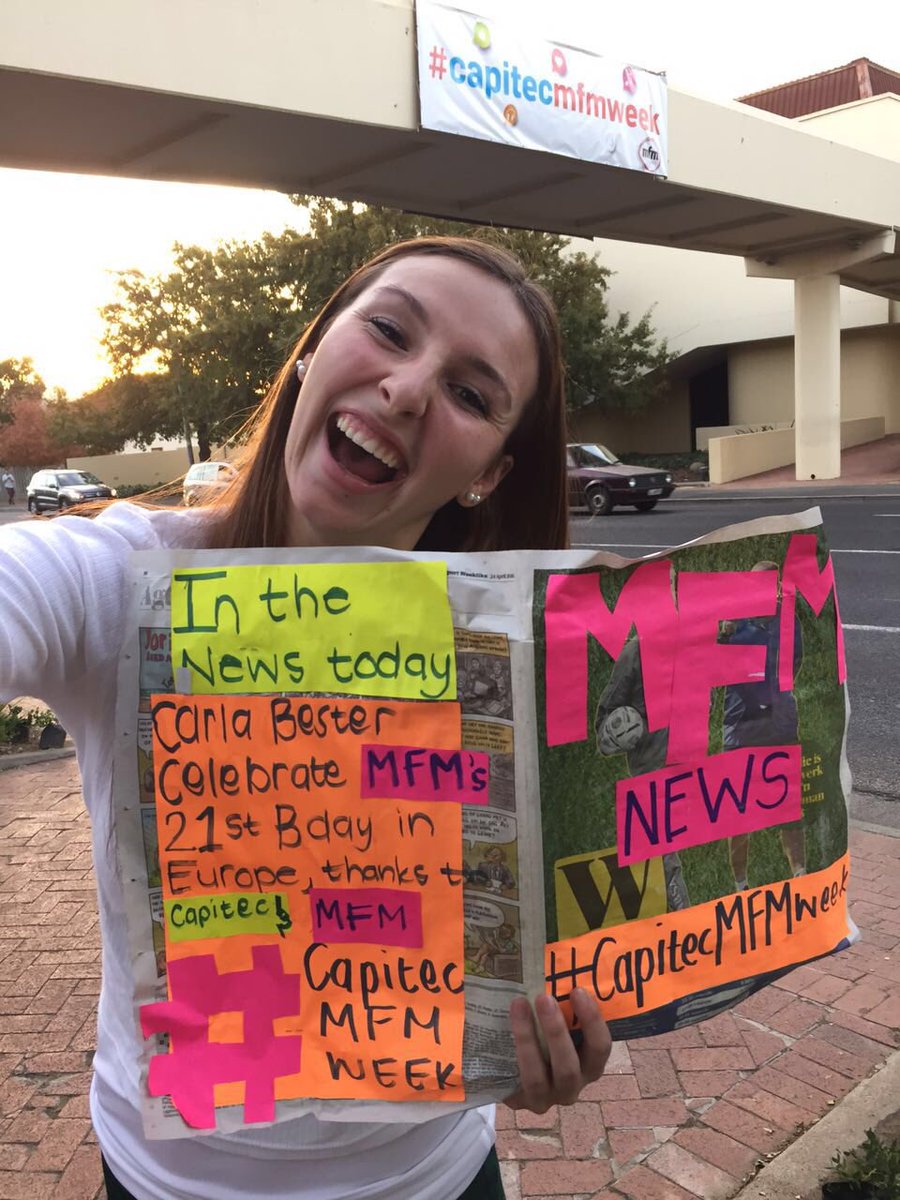 #capitecmfmweek
mfm
In the
News today
Carla Bester
Celebrate MFM's
21st Bday in
Europe, thanks to
Capitec & MFM
#
Capitec
MFM
WEEK
MFM
NEWS
W
#CapitecMFMweek